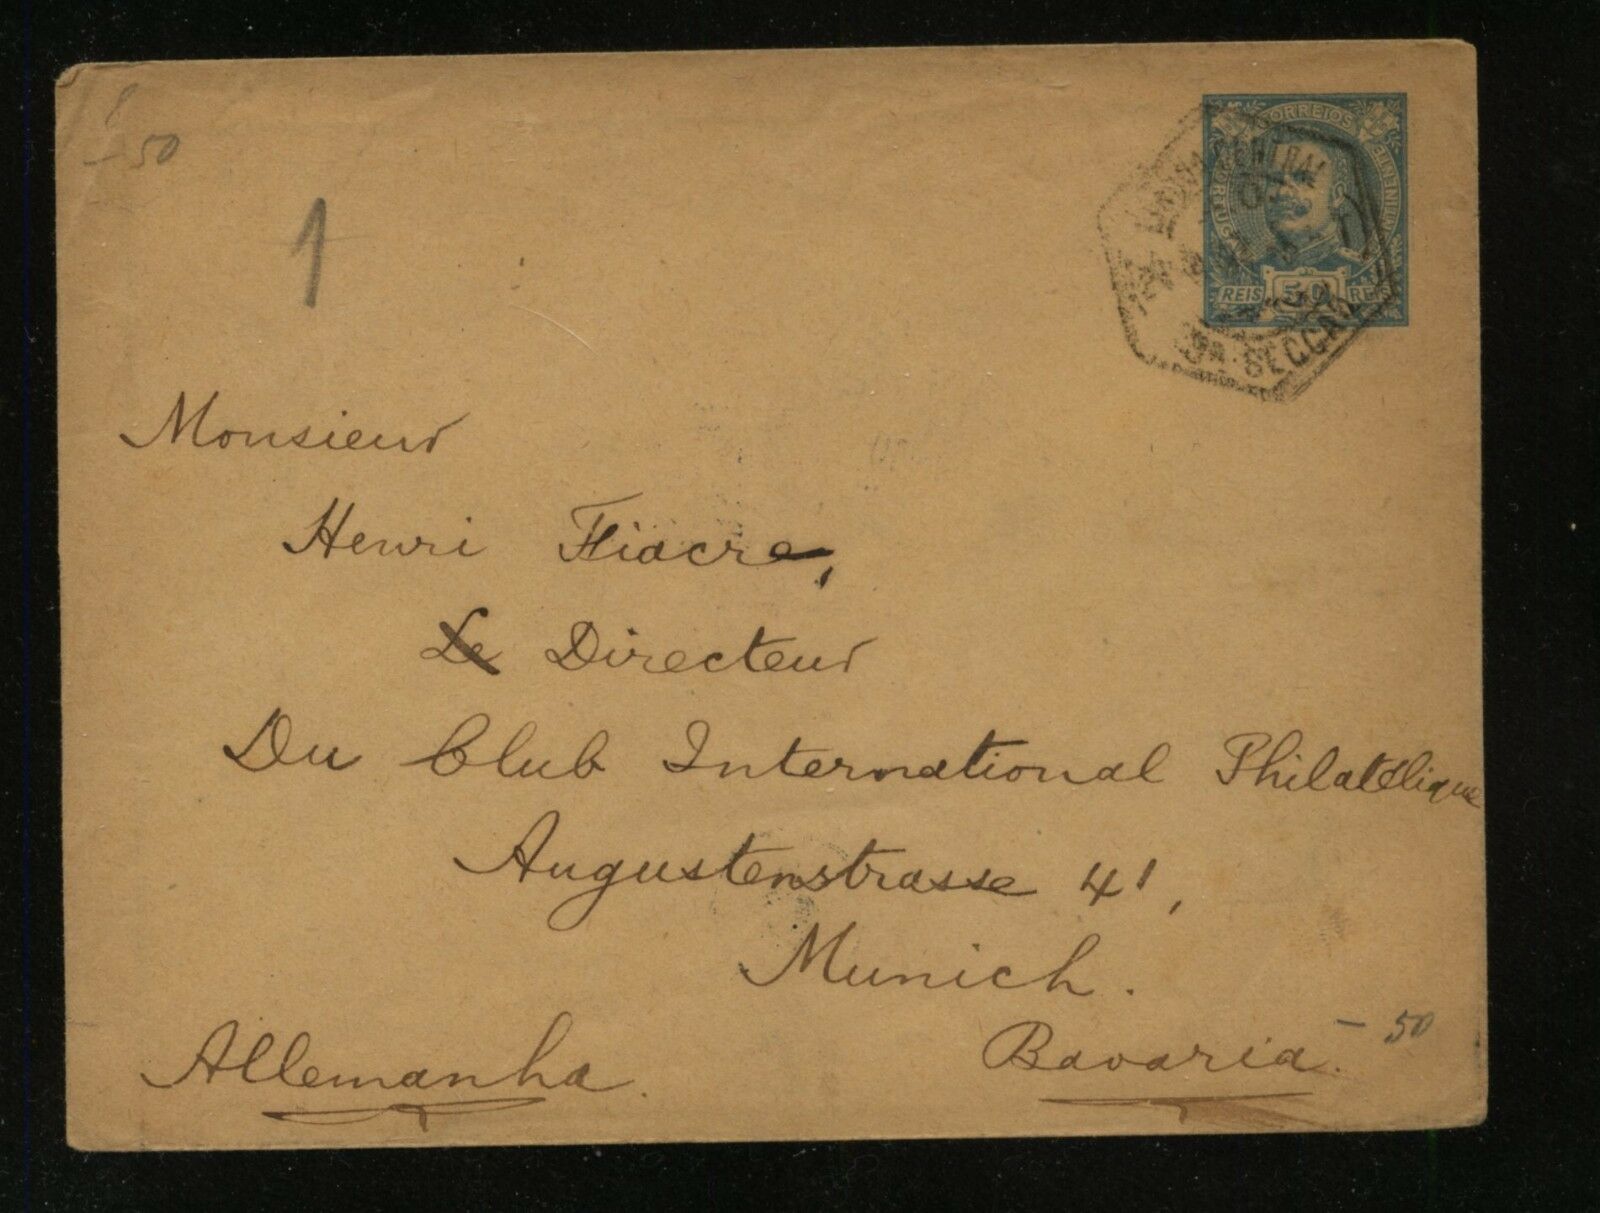 - 50
1
CORREIOS
REIS 50 REIS
CENTRAL
SECÇÃO
Monsieur
Henri Fiacre,
Le Directeur
Du Club International Philatélique
Augustenstrasse 41,
Munich.
Allemanha.
Bavaria.
- 50